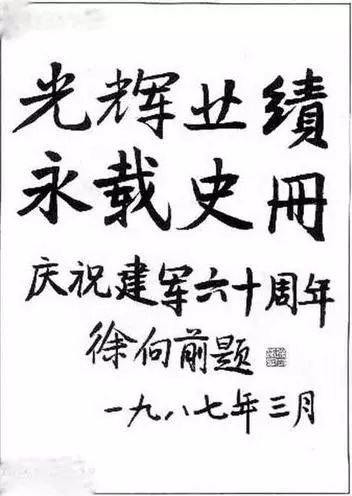 光辉业績
永载史册
庆祝建军六十周年
徐向前题
一九八七年三月